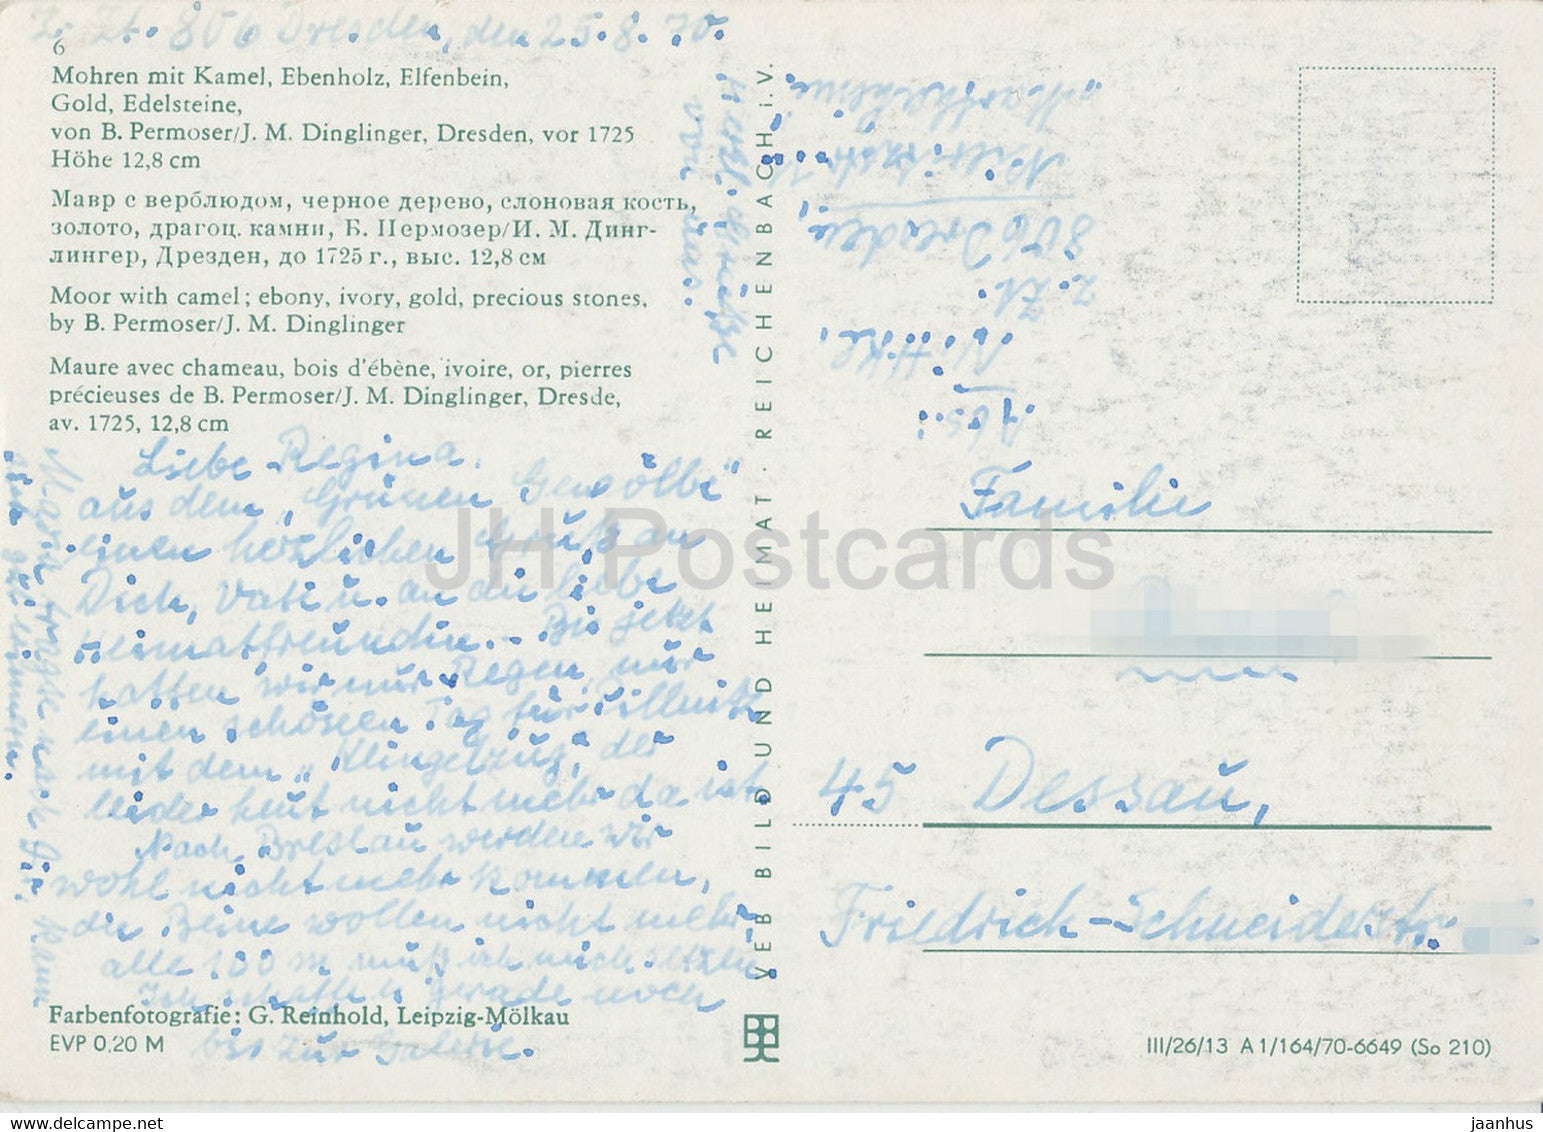 z. Zt. 806 Dresden, den 25.8.70.
6
Mohren mit Kamel, Ebenholz, Elfenbein,
Gold, Edelsteine,
von B. Permoser/J. M. Dinglinger, Dresden, vor 1725
Höhe 12,8 cm
Мавр с верблюдом, черное дерево, слоновая кость,
золото, драгоц. камни, Б. Пермозер/И. М. Динг-
лингер, Дрезден, до 1725 г., выс. 12,8 см
Moor with camel; ebony, ivory, gold, precious stones,
by B. Permoser/J. M. Dinglinger
Maure avec chameau, bois d'ébène, ivoire, or, pierres
précieuses de B. Permoser/J. M. Dinglinger, Dresde,
av. 1725, 12,8 cm
Liebe Regina.
aus dem „Grünen Gewölbe"
einen herzlichen Gruß an
Dich, Vati u. an die liebe
Heimatfreundin. - Bis jetzt
hatten wir nur Regen, nur
einen schönen Tag für Pillnitz
mit dem „Klingelzug, der
leider heut nicht mehr da ist.
Nach Breslau werden wir
wohl nicht mehr kommen,
die Beine wollen nicht mehr,
alle 100 m muß ich mich setzen.
Ich schaffe gerade noch
bis zur Galerie.
Farbenfotografie: G. Reinhold, Leipzig-Mölkau
EVP 0,20 M
Herzl. Grüße
von
VEB BILD UND HEIMAT · REICHENBACH i. V.
Abs.:
z. Zt.
806 Dresden,
Familie
45 Dessau,
Friedrich-Schneiderstr.
III/26/13 A 1/164/70-6649 (So 210)
JH Postcards
www.delcampe.net
jaanhus